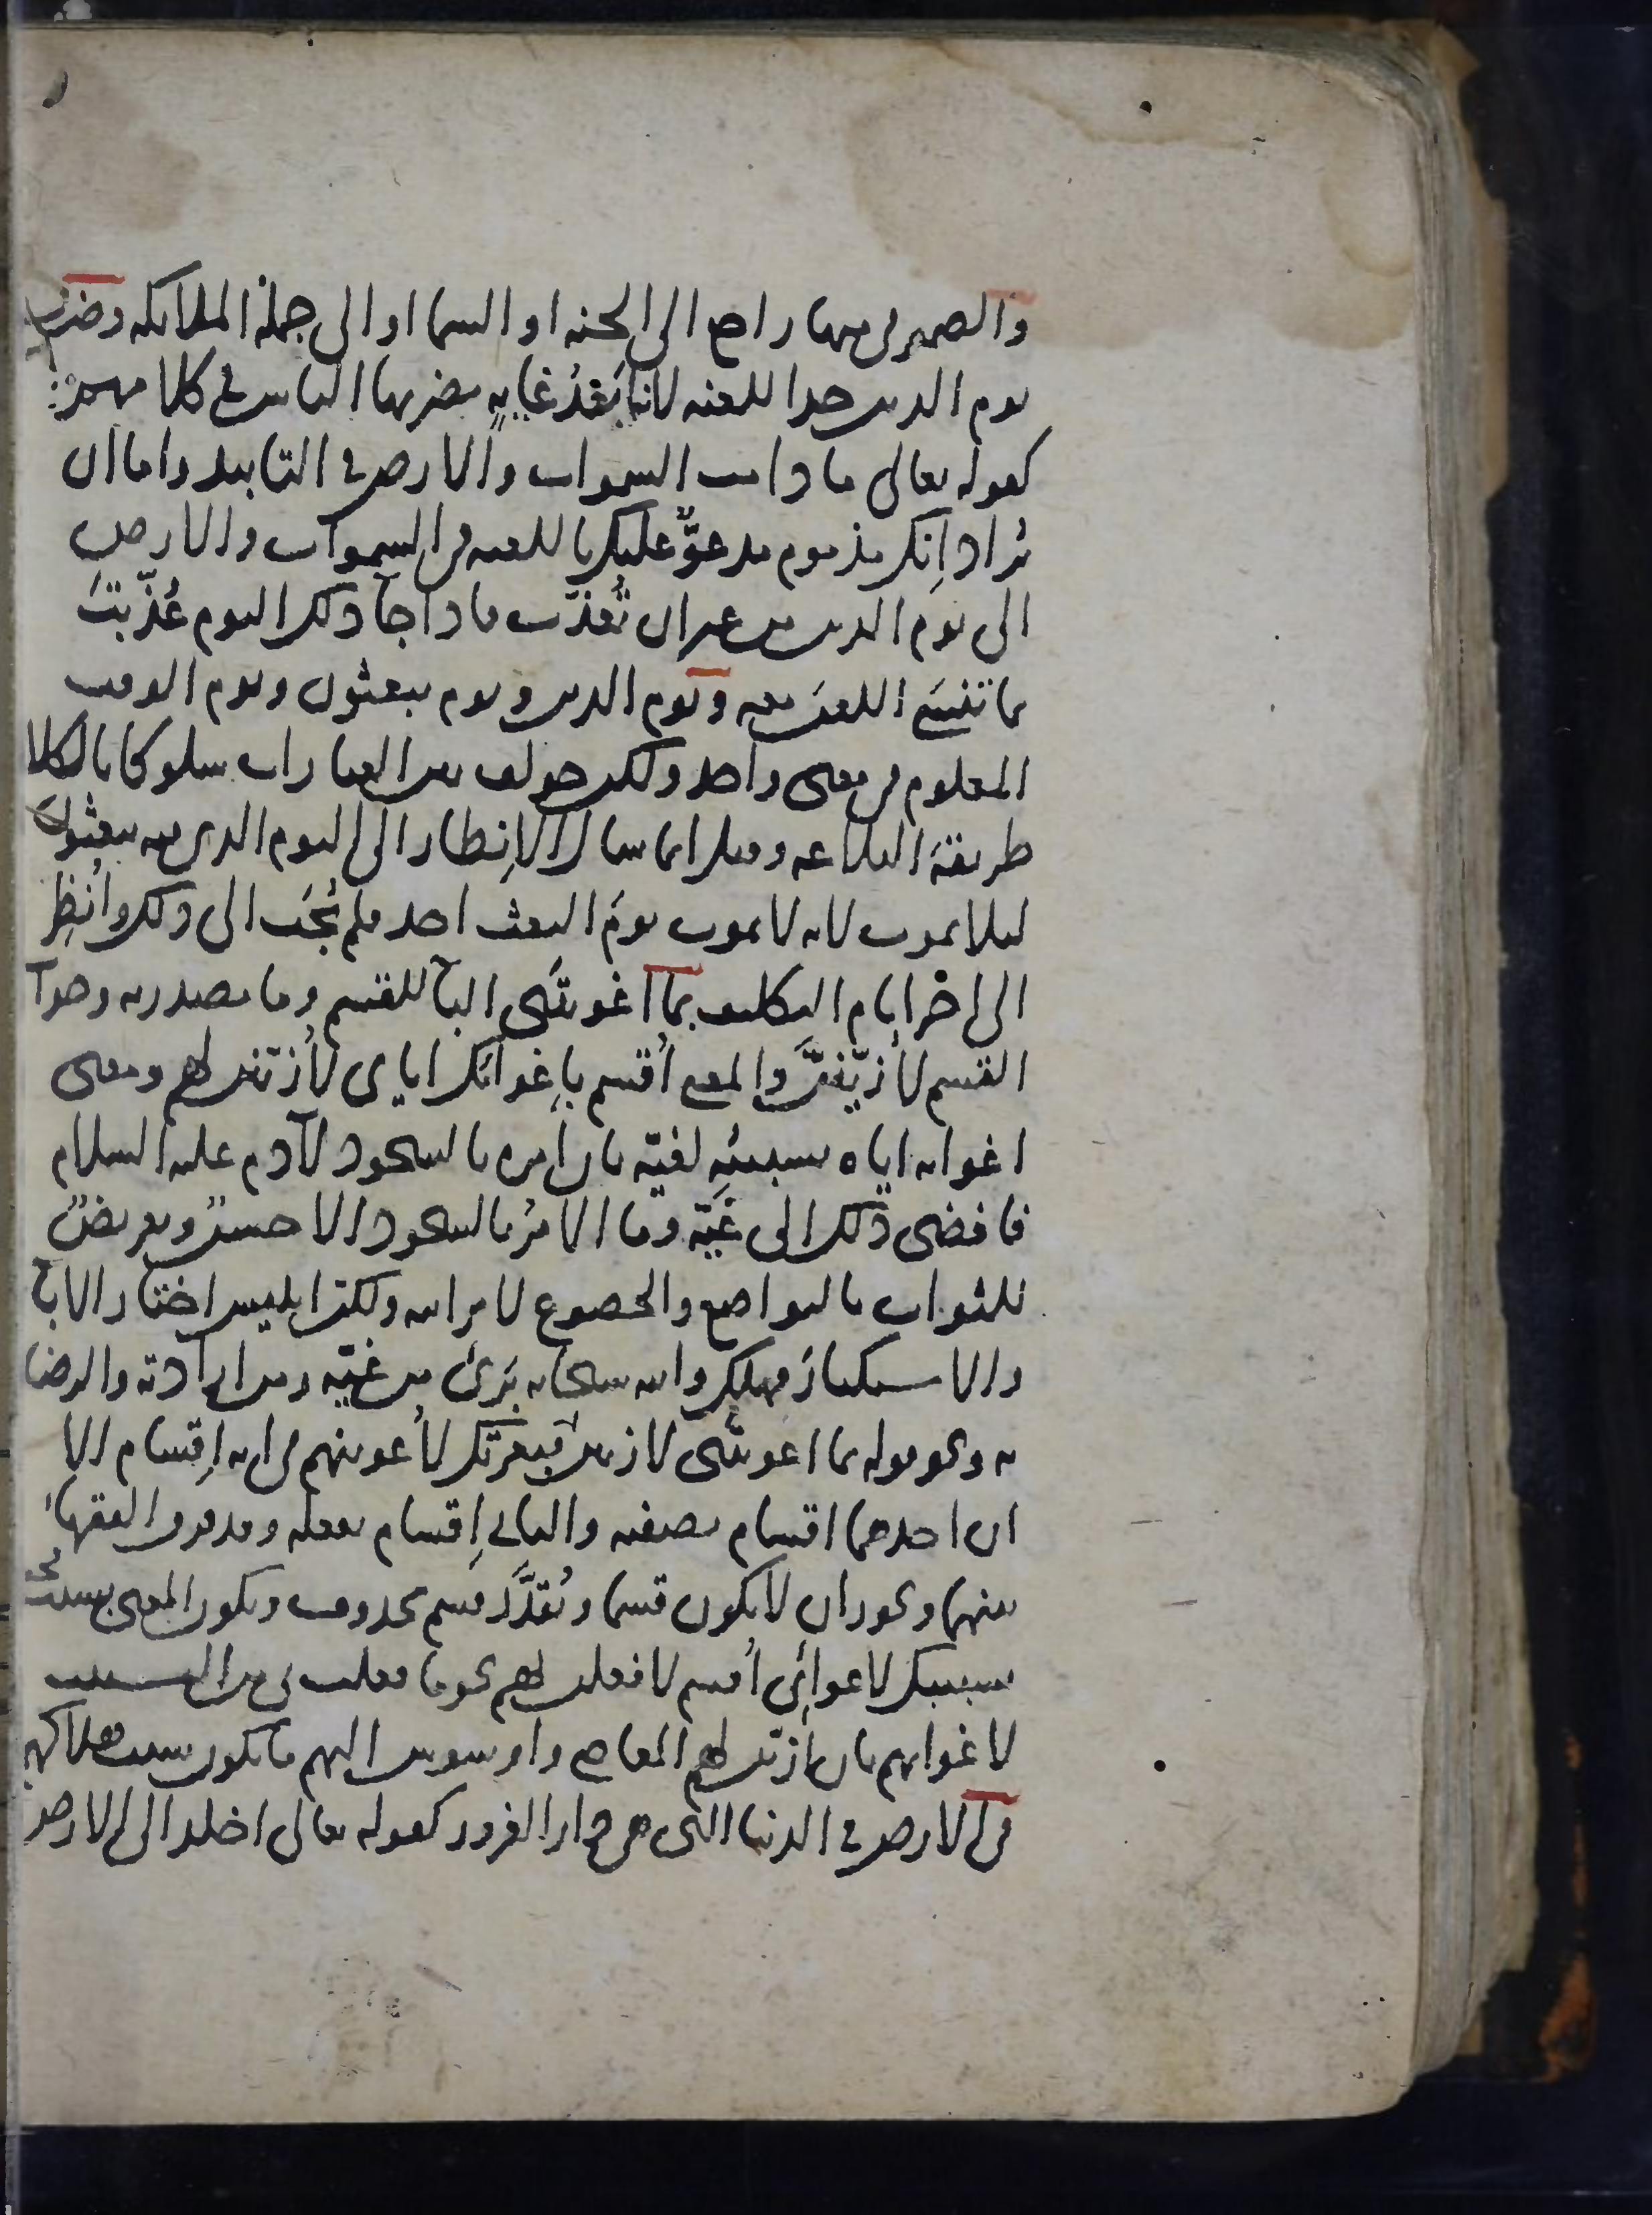 والضمير في منها راجع الى الجنه او السما او الى جملة الملائكه وضرب
يوم الدين حدا للعنه لانه ابعَدُ غايهٍ يضربها الناس في كلامهم :
كقوله تعالى ما دامت السموات والارض في التابيد واما ان
يُراد إنك مذموم مدعوٌّ عليك باللعنه في السموات والارض
الى يوم الدين من غير ان تُعذّب فاذا جآ ذلك اليوم عُذّبتَ
بما تنسَى اللعنَ معه ويوم الدين ويوم يبعثون ويوم الوقت
المعلوم في معنى واحد ولكن خولف بين العبارات سلوكا بالكلا
طريقةَ البلاغه وقيل انما سال الإنظار الى اليوم الذي فيه يبعثون
ليلا يموت لانه لا يموت يومَ البعث احد فلم يُجَب الى ذلك وأُنظِر
الى اخر ايام التكليف بما اغويتنى البآ للقسم وما مصدريه وجوآ
القسم لأزيّننَّ والمعنى أقسم بإغوائك اياى لأزيّنن لهم ومعنى
اغوائه اياه تسبيبُه لغيّه بان أمره بالسجود لآدم عليه السلام
فافضى ذلك الى غيّه وما الامرُ بالسجود الا حسنٌ وتعريضٌ
للثواب بالتواضع والخضوع لامر الله ولكنّ ابليس اختار الابآ
والاستكبارَ فهلك والله سبحانه برئ من غيّه ومن ارادته والرضا
به ونحو قوله بما اغويتنى لازينن فبعزتك لأغوينهم في انه إقسام الا
ان احدهما اقسام بصفته والثاني إقسام بفعله وقد فرق الفقهآ
بينهما ويجوز ان لا يكون قسما ويُقدَّرَ قسم محذوف ويكون المعنى بسبب
تسبيبك لاغوائى أقسم لافعلن لهم نحو ما فعلت بى من التسبيب
لاغوائهم بان أزيّن لهم المعاصى واوسوس اليهم ما يكون سبب هلاكهم
في الارض في الدنيا التى هى دار الغرور كقوله تعالى اخلد الى الارض